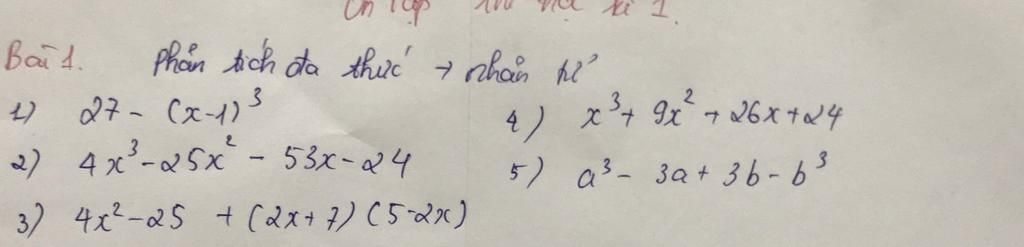 Ôn tập thi học kì 1.
Bài 1. Phân tích đa thức → nhân tử
1) 27 - (x-1)³
2) 4x³-25x² - 53x-24
3) 4x²-25 + (2x+7)(5-2x)
4) x³+ 9x² + 26x+24
5) a³- 3a+ 3b- b³